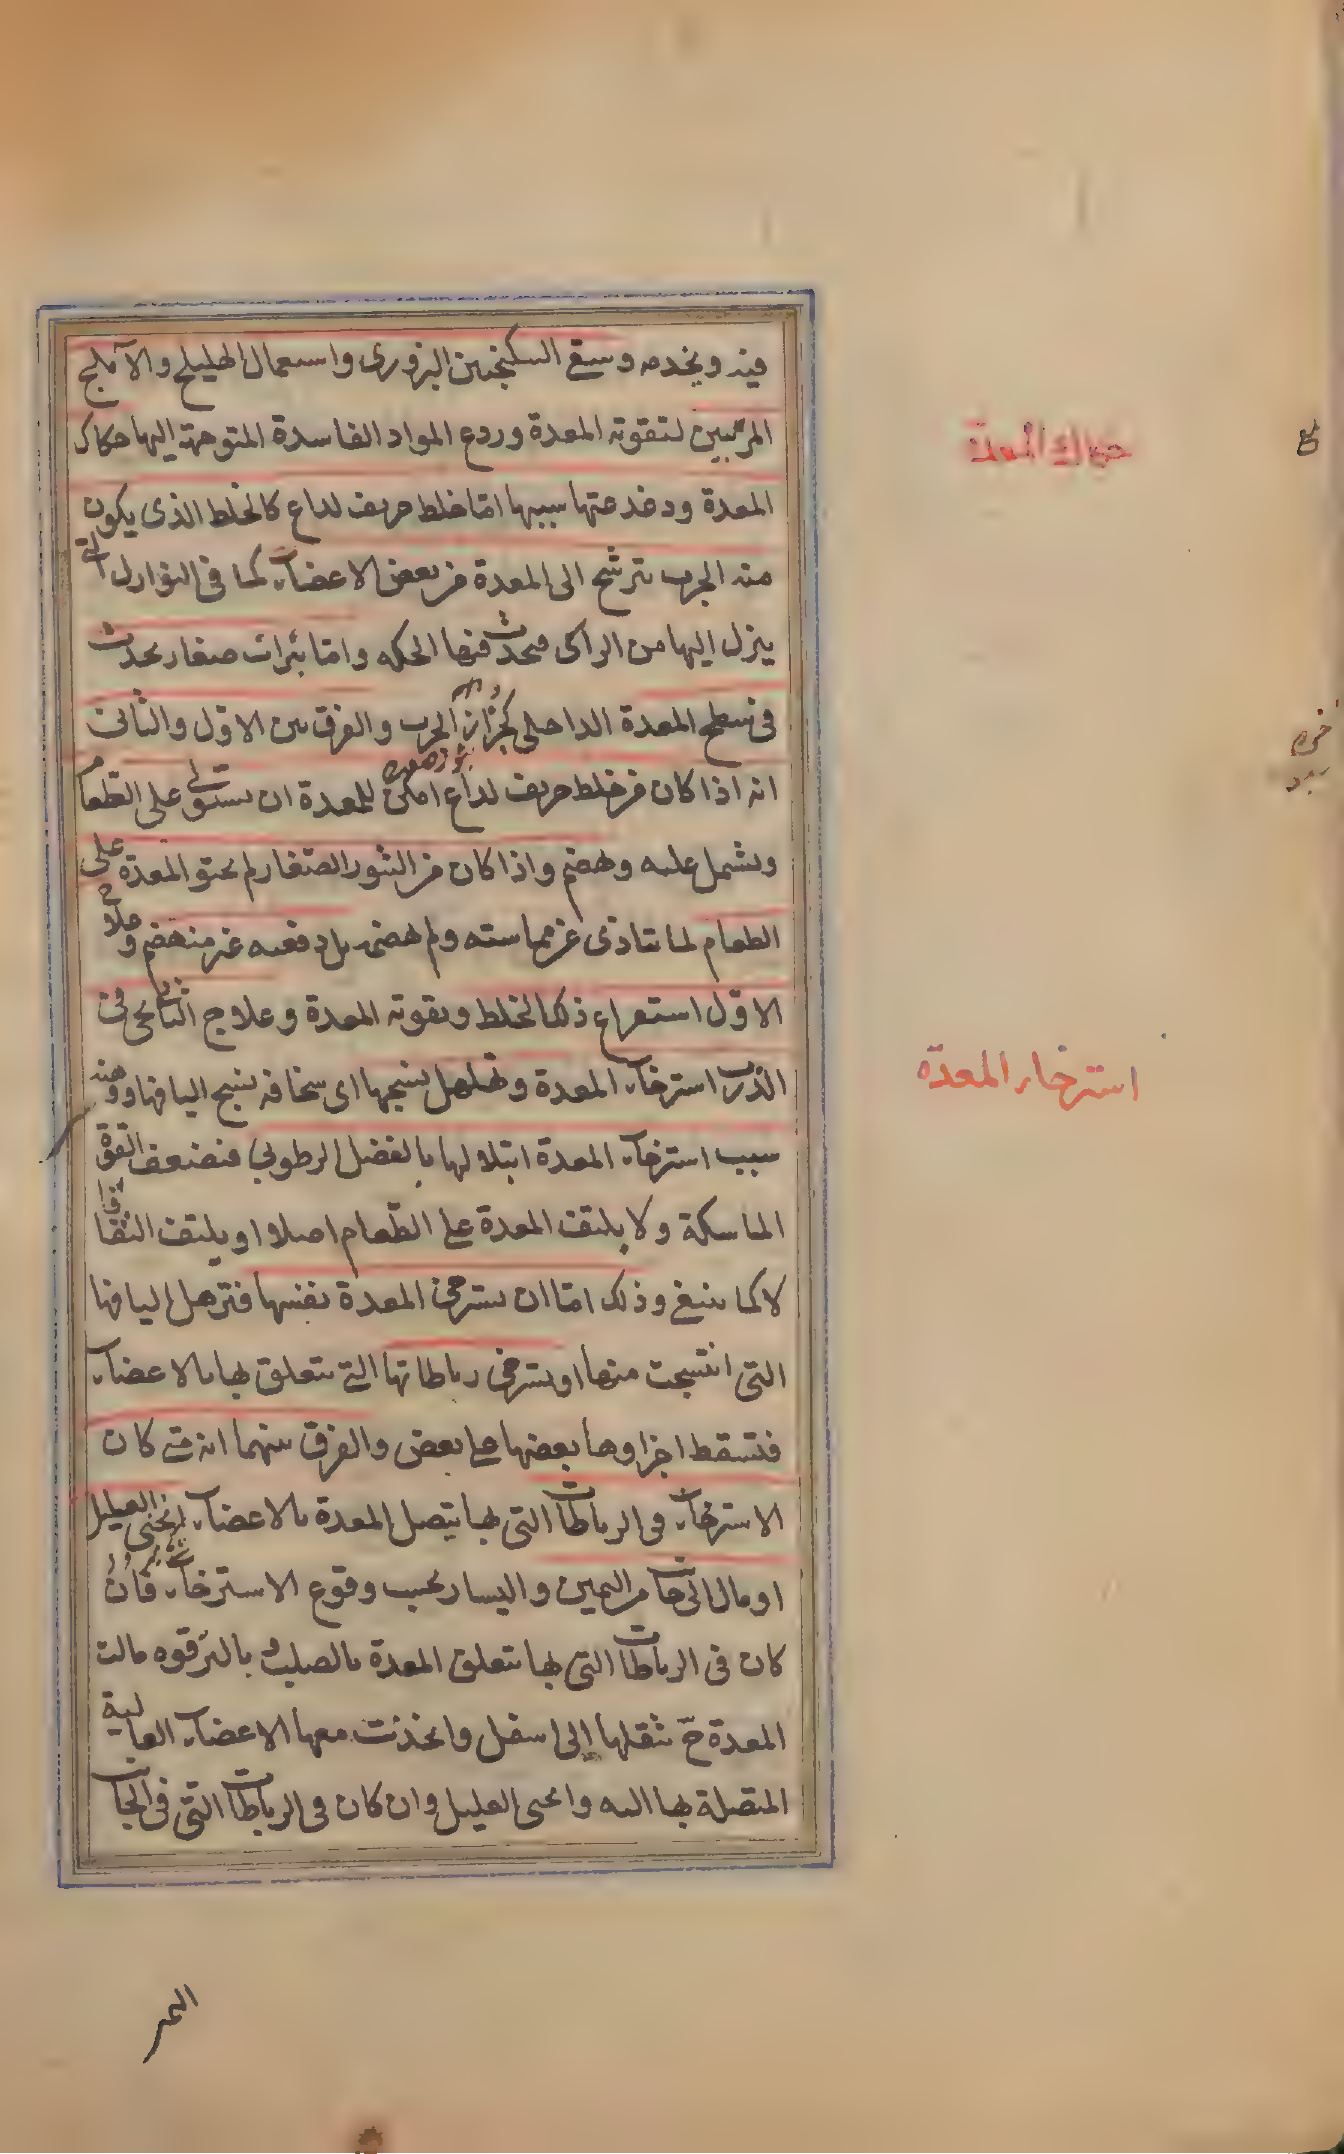 فيه ويخدمه وسقى السكنجبين البزورى واستعمال الهليلج والآملج
المربيين لتقوية المعدة وردع المواد الفاسدة المتوجهة اليها حكاك
المعدة ودغدغتها سببها اما خلط حريف لداع كالخلط الذى يكون
منه الجرب يترشح الى المعدة من بعض الاعضاء كما فى النوازل التى
ينزل اليها من الراس فيحدث فيها الحكه واما بثرات صغار يحدث
فى سطح المعدة الداخلى الجرب والفرق بين الاول والثانى
انه اذا كان من خلط حريف لداع امكن للمعدة ان يستولى على الطعام
ويشتمل عليه ويهضم واذا كان من البثور الصغار لم يحتو المعدة على
الطعام لما يتاذى عن مماسته ولم يهضمه بل دفعه غير منهضم وعلاج
الاول استفراغ ذلك الخلط وتقوية المعدة وعلاج الثانى يجئ فى
الذرب استرخاء المعدة وتهلهل نسيجها اى سخافة نسج اليافها ووهنه
سبب استرخاء المعدة ابتلالها بالفضل الرطوبى فتضعف القوة
الماسكة ولا يلتف المعدة على الطعام اصلا او يلتف التفافا
لا كما ينبغى وذلك اما ان يسترخى المعدة بنفسها فترهل اليافها
التى انتسجت منها او يسترخى رباطاتها التى يتعلق بها بالاعضاء
فتسقط اجزاوها بعضها على بعض والفرق بينهما انه متى كان
الاسترخاء فى الرباطات التى بها يتصل المعدة بالاعضاء انحنى العليل
او مال الى جانب من اليمين واليسار بحسب وقوع الاسترخاء فان
كان فى الرباطات التى بها يتعلق المعدة بالصلب و بالترقوه مالت
المعدة ح بثقلها الى اسفل وانجذبت معها الاعضاء العالية
المتصلة بها اليه وانحنى العليل وان كان فى الرباطات التى فى الجانب
حكاك المعدة
استرخاء المعدة